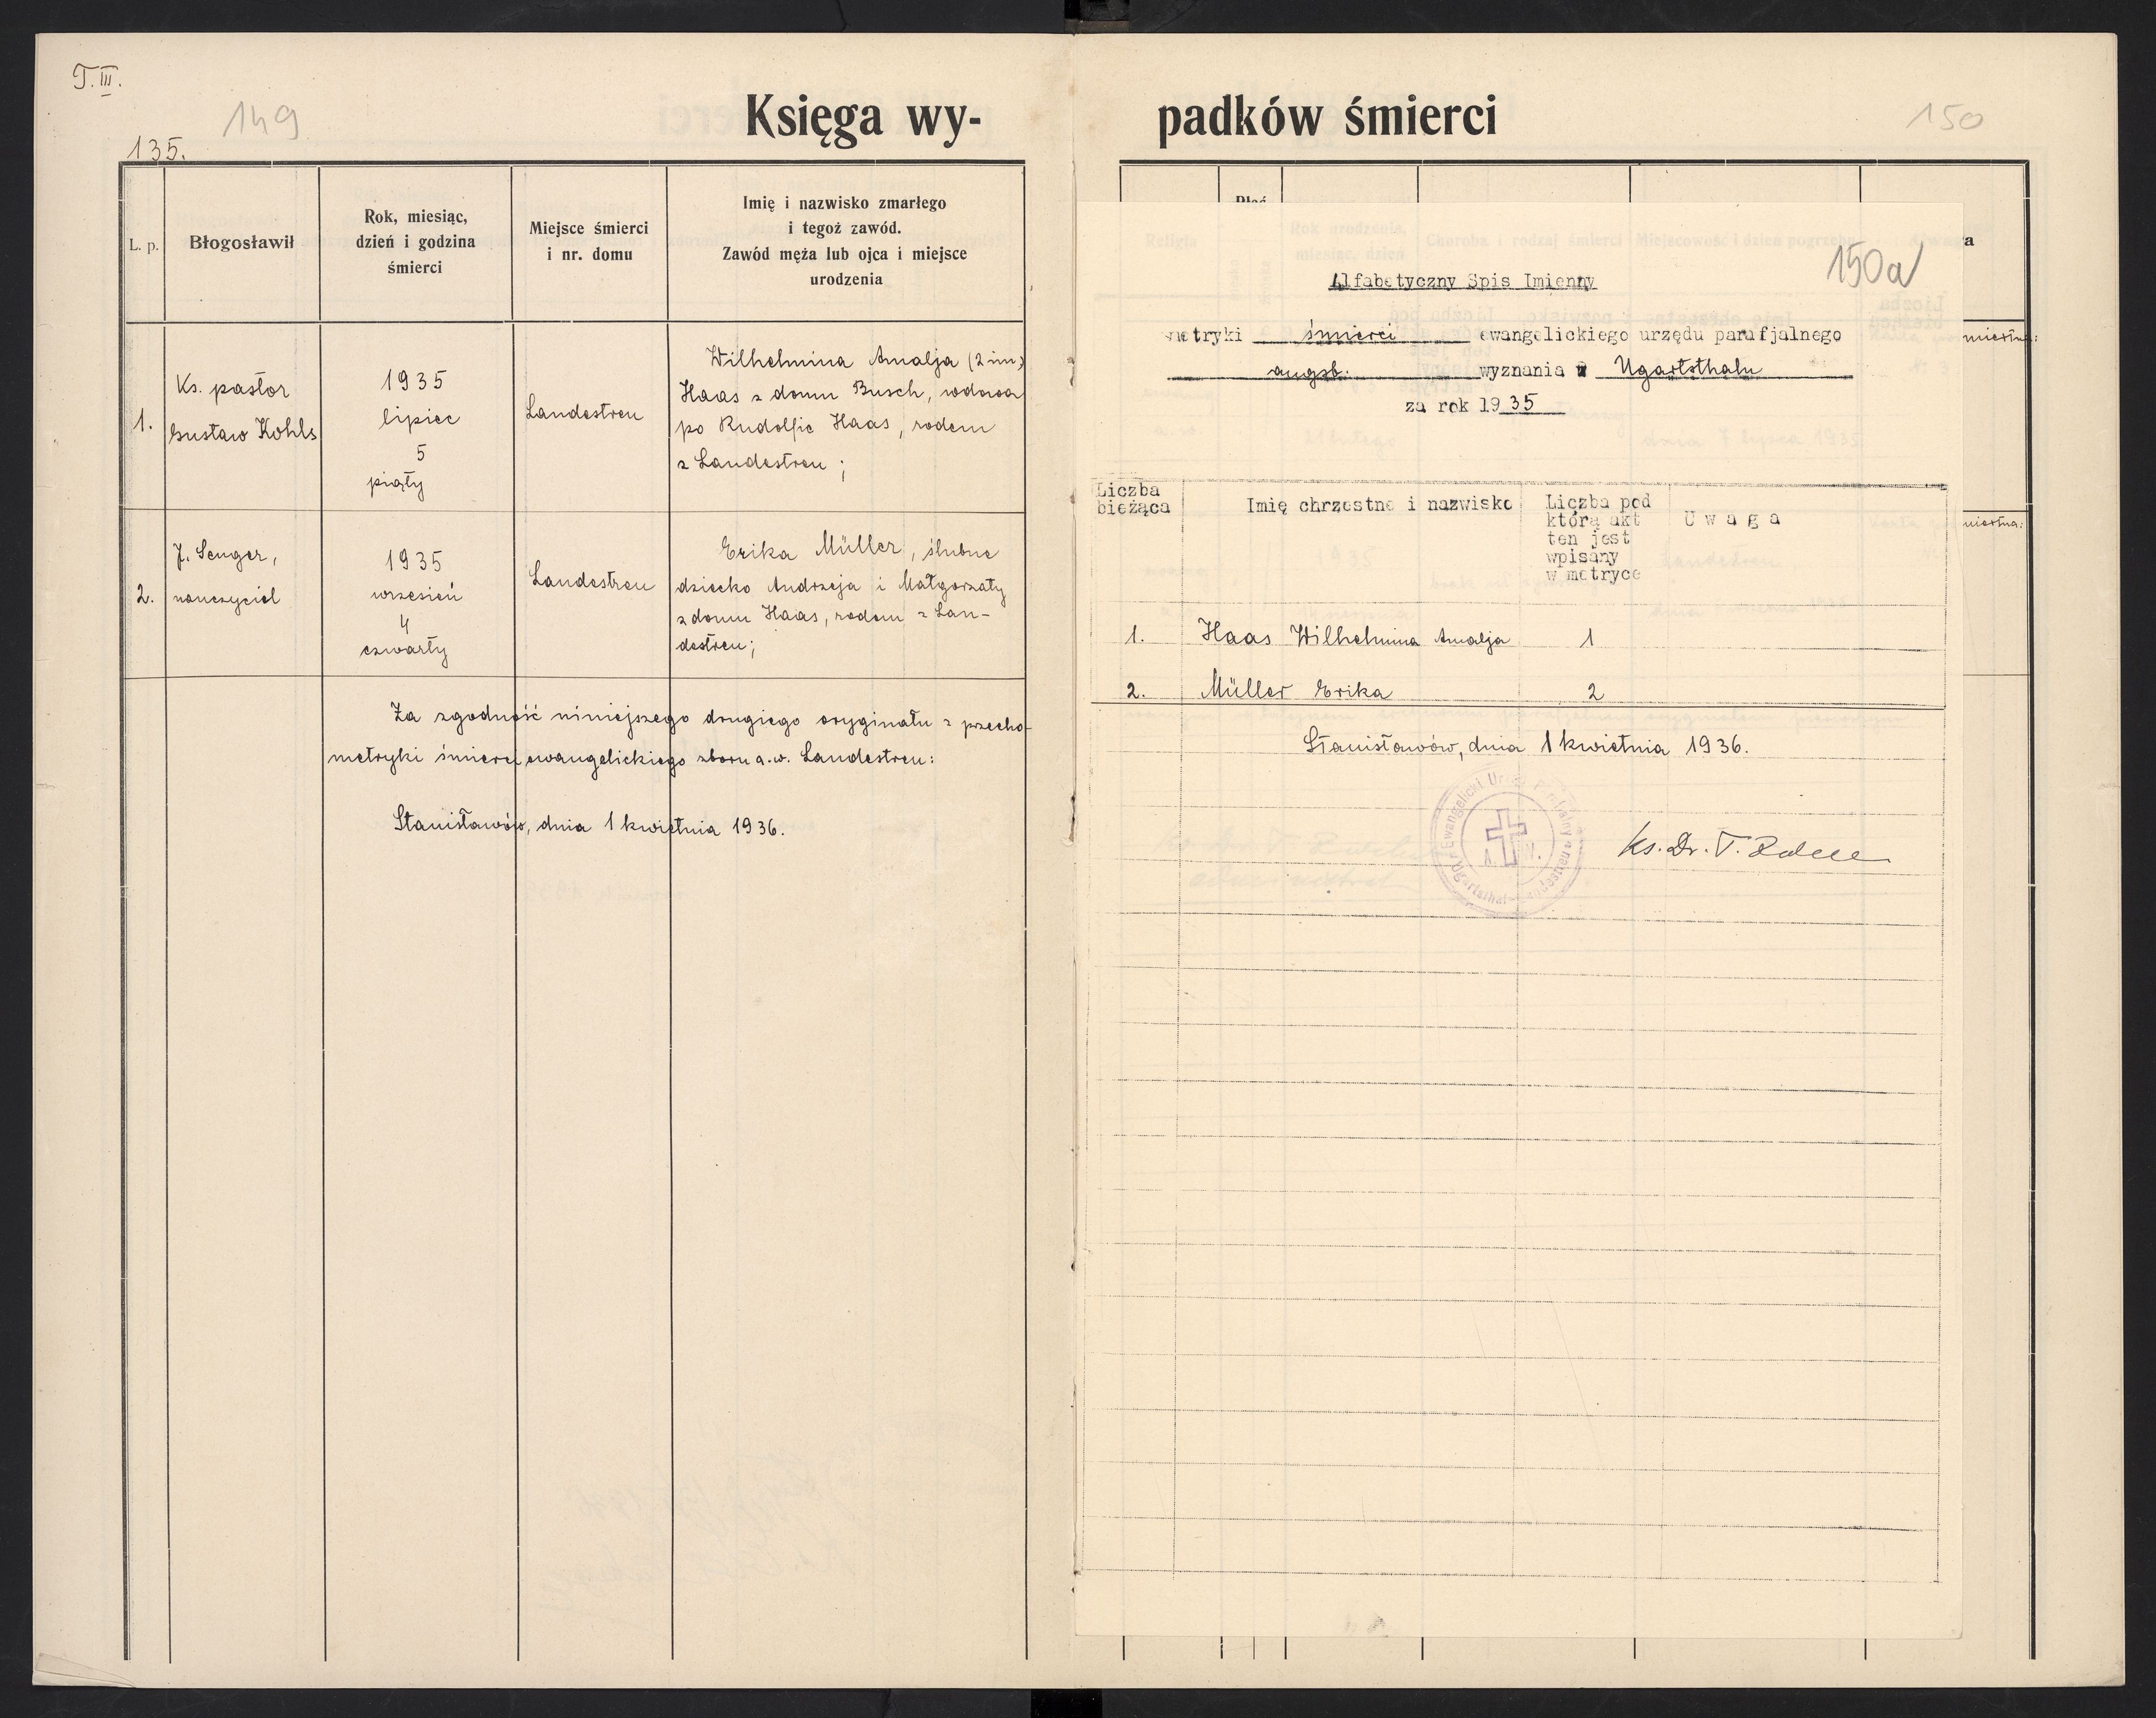 T. III.
149
135.
Księga wy-
L. p.
Błogosławił
Rok, miesiąc,
dzień i godzina
śmierci
Miejsce śmierci
i nr. domu
Imię i nazwisko zmarłego
i tegoż zawód.
Zawód męża lub ojca i miejsce
urodzenia
1.
Ks. pastor
Gustaw Kohls
1935
lipiec
5
piąty
Landestreu
Wilhelmina Amalja (2 im.)
Haas z domu Busch, wdowa
po Rudolfie Haas, rodem
z Landestreu ;
2.
J. Senger,
nauczyciel
1935
wrzesień
4
czwarty
Landestreu
Erika Müller, ślubne
dziecko Andrzeja i Małgorzaty
z domu Haas, rodem z Lan-
destreu;
Za zgodność niniejszego drugiego oryginału z przecho-
metryki śmierci ewangelickiego zboru a.w. Landestreu:
Stanisławów, dnia 1 kwietnia 1936.
padków śmierci
150
150a
Alfabetyczny Spis Imienny
metryki śmierci ewangelickiego urzędu parafjalnego
augsb. wyznania w Ugartsthalu
za rok 1935
Liczba
bieżąca
Imię chrzestne i nazwisko
Liczba pod
którą akt
ten jest
wpisany
w metryce
Uwaga
1. Haas Wilhelmina Amalja 1
2. Müller Erika 2
Stanisławów, dnia 1 kwietnia 1936.
Ewangelicki Urząd Parafjalny
A. W.
Ks. Dr. T.